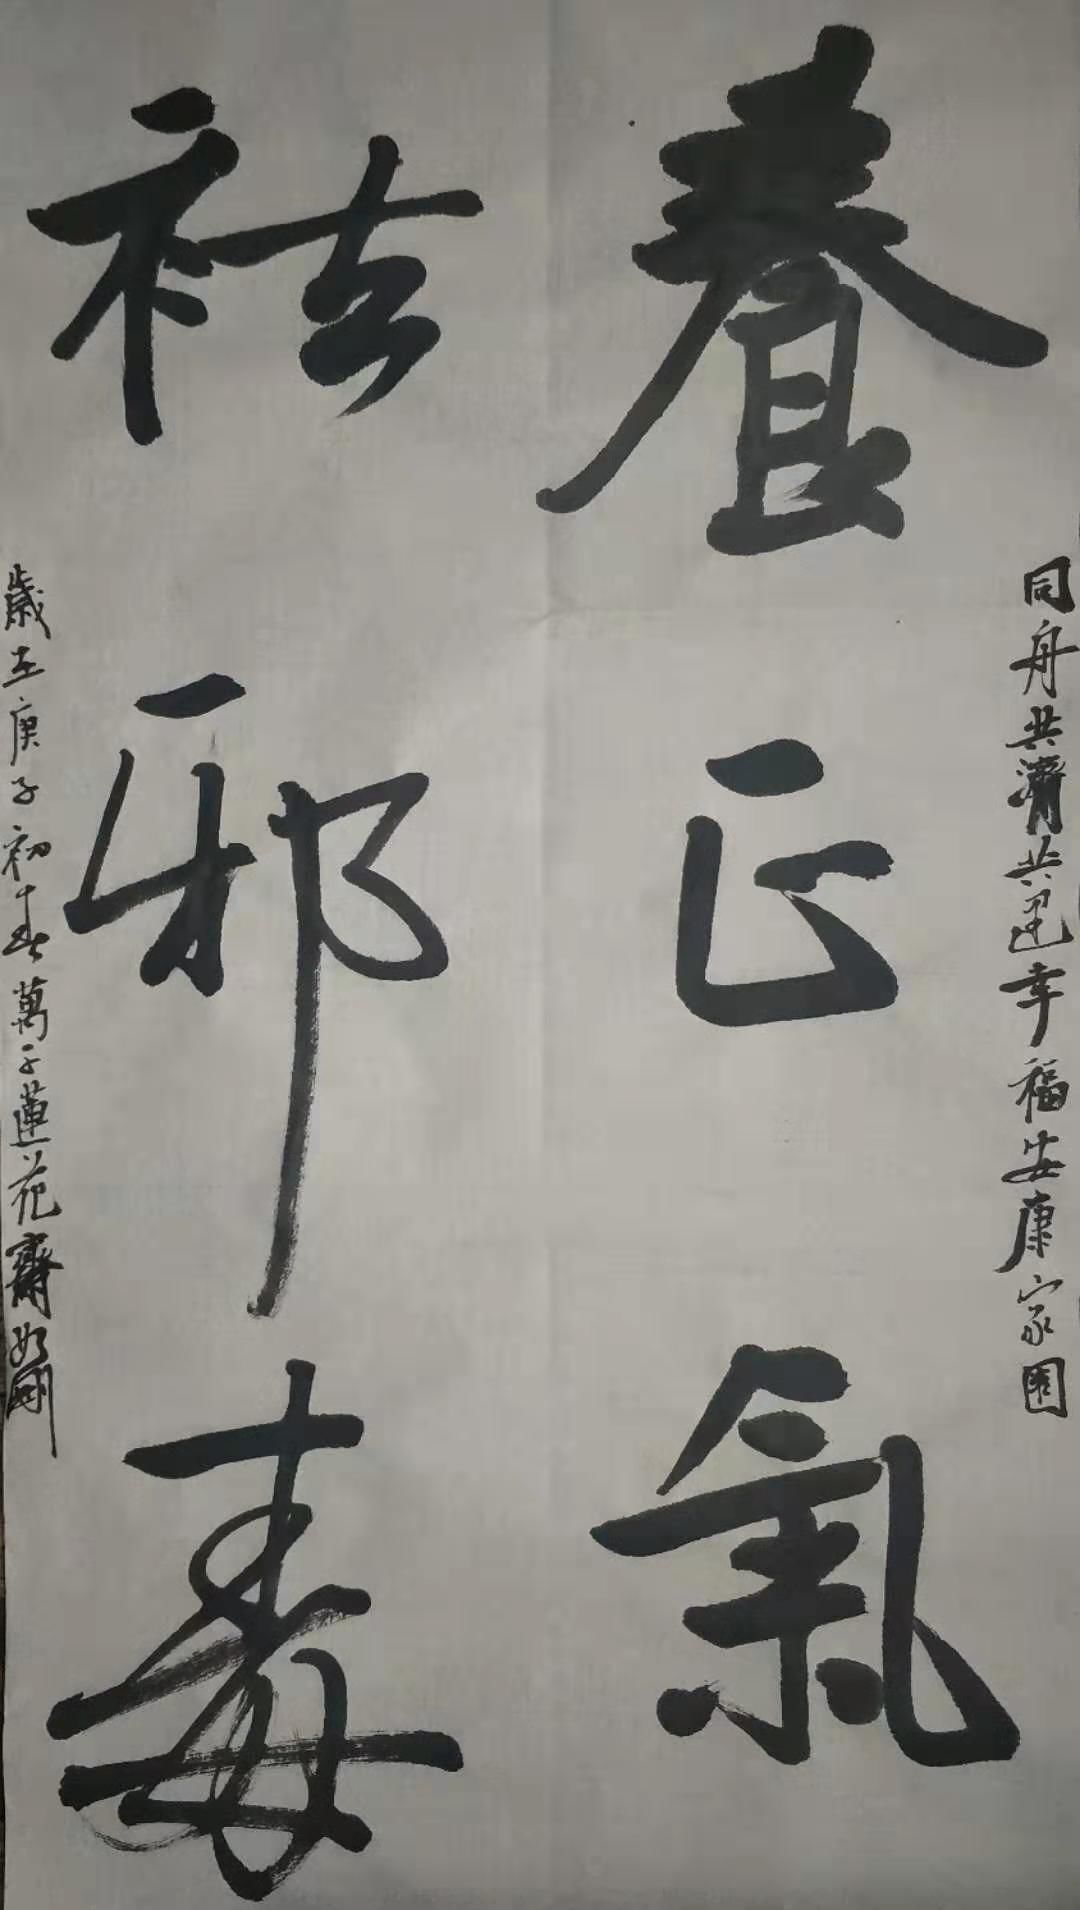 同舟共濟共建幸福安康家園
養正氣
祛邪毒
歲在庚子初春萬子蓮花齋如剛